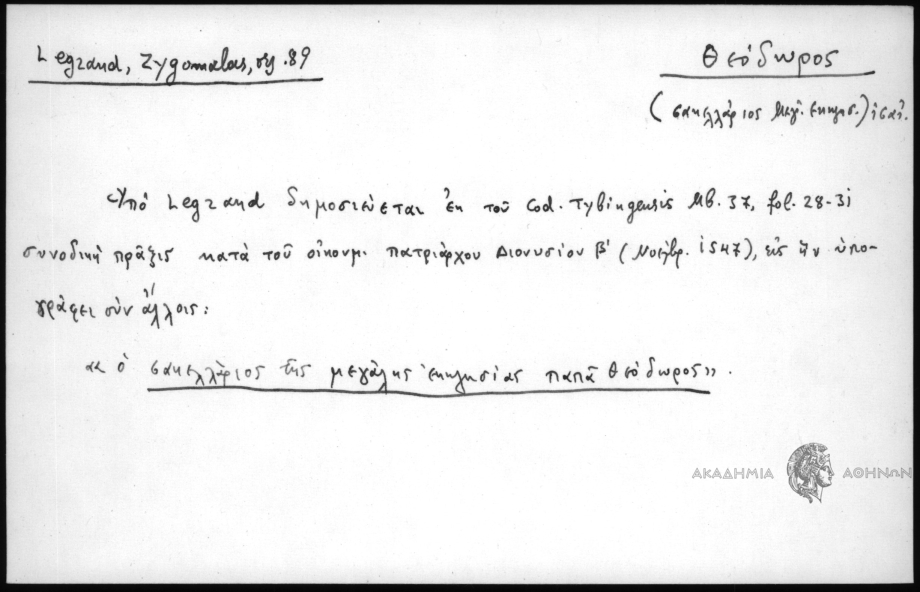 Legrand, Zygomalas, σελ. 89
Θεόδωρος
(σακελλάριος Μεγ. Εκκλησ.)
Ὑπό Legrand δημοσιεύεται ἐκ τοῦ Cod. Tybingensis Mb. 37, fol. 28-31
συνοδική πρᾶξις κατά τοῦ οἰκουμ. Πατριάρχου Διονυσίου Β' (Νοεμβρ. 1547), εἰς ἥν ὑπο-
γράφει σύν ἄλλοις:
«ὁ σακελλάριος τῆς μεγάλης ἐκκλησίας παπᾶ Θεόδωρος».
ΑΚΑΔΗΜΙΑ ΑΘΗΝΩΝ